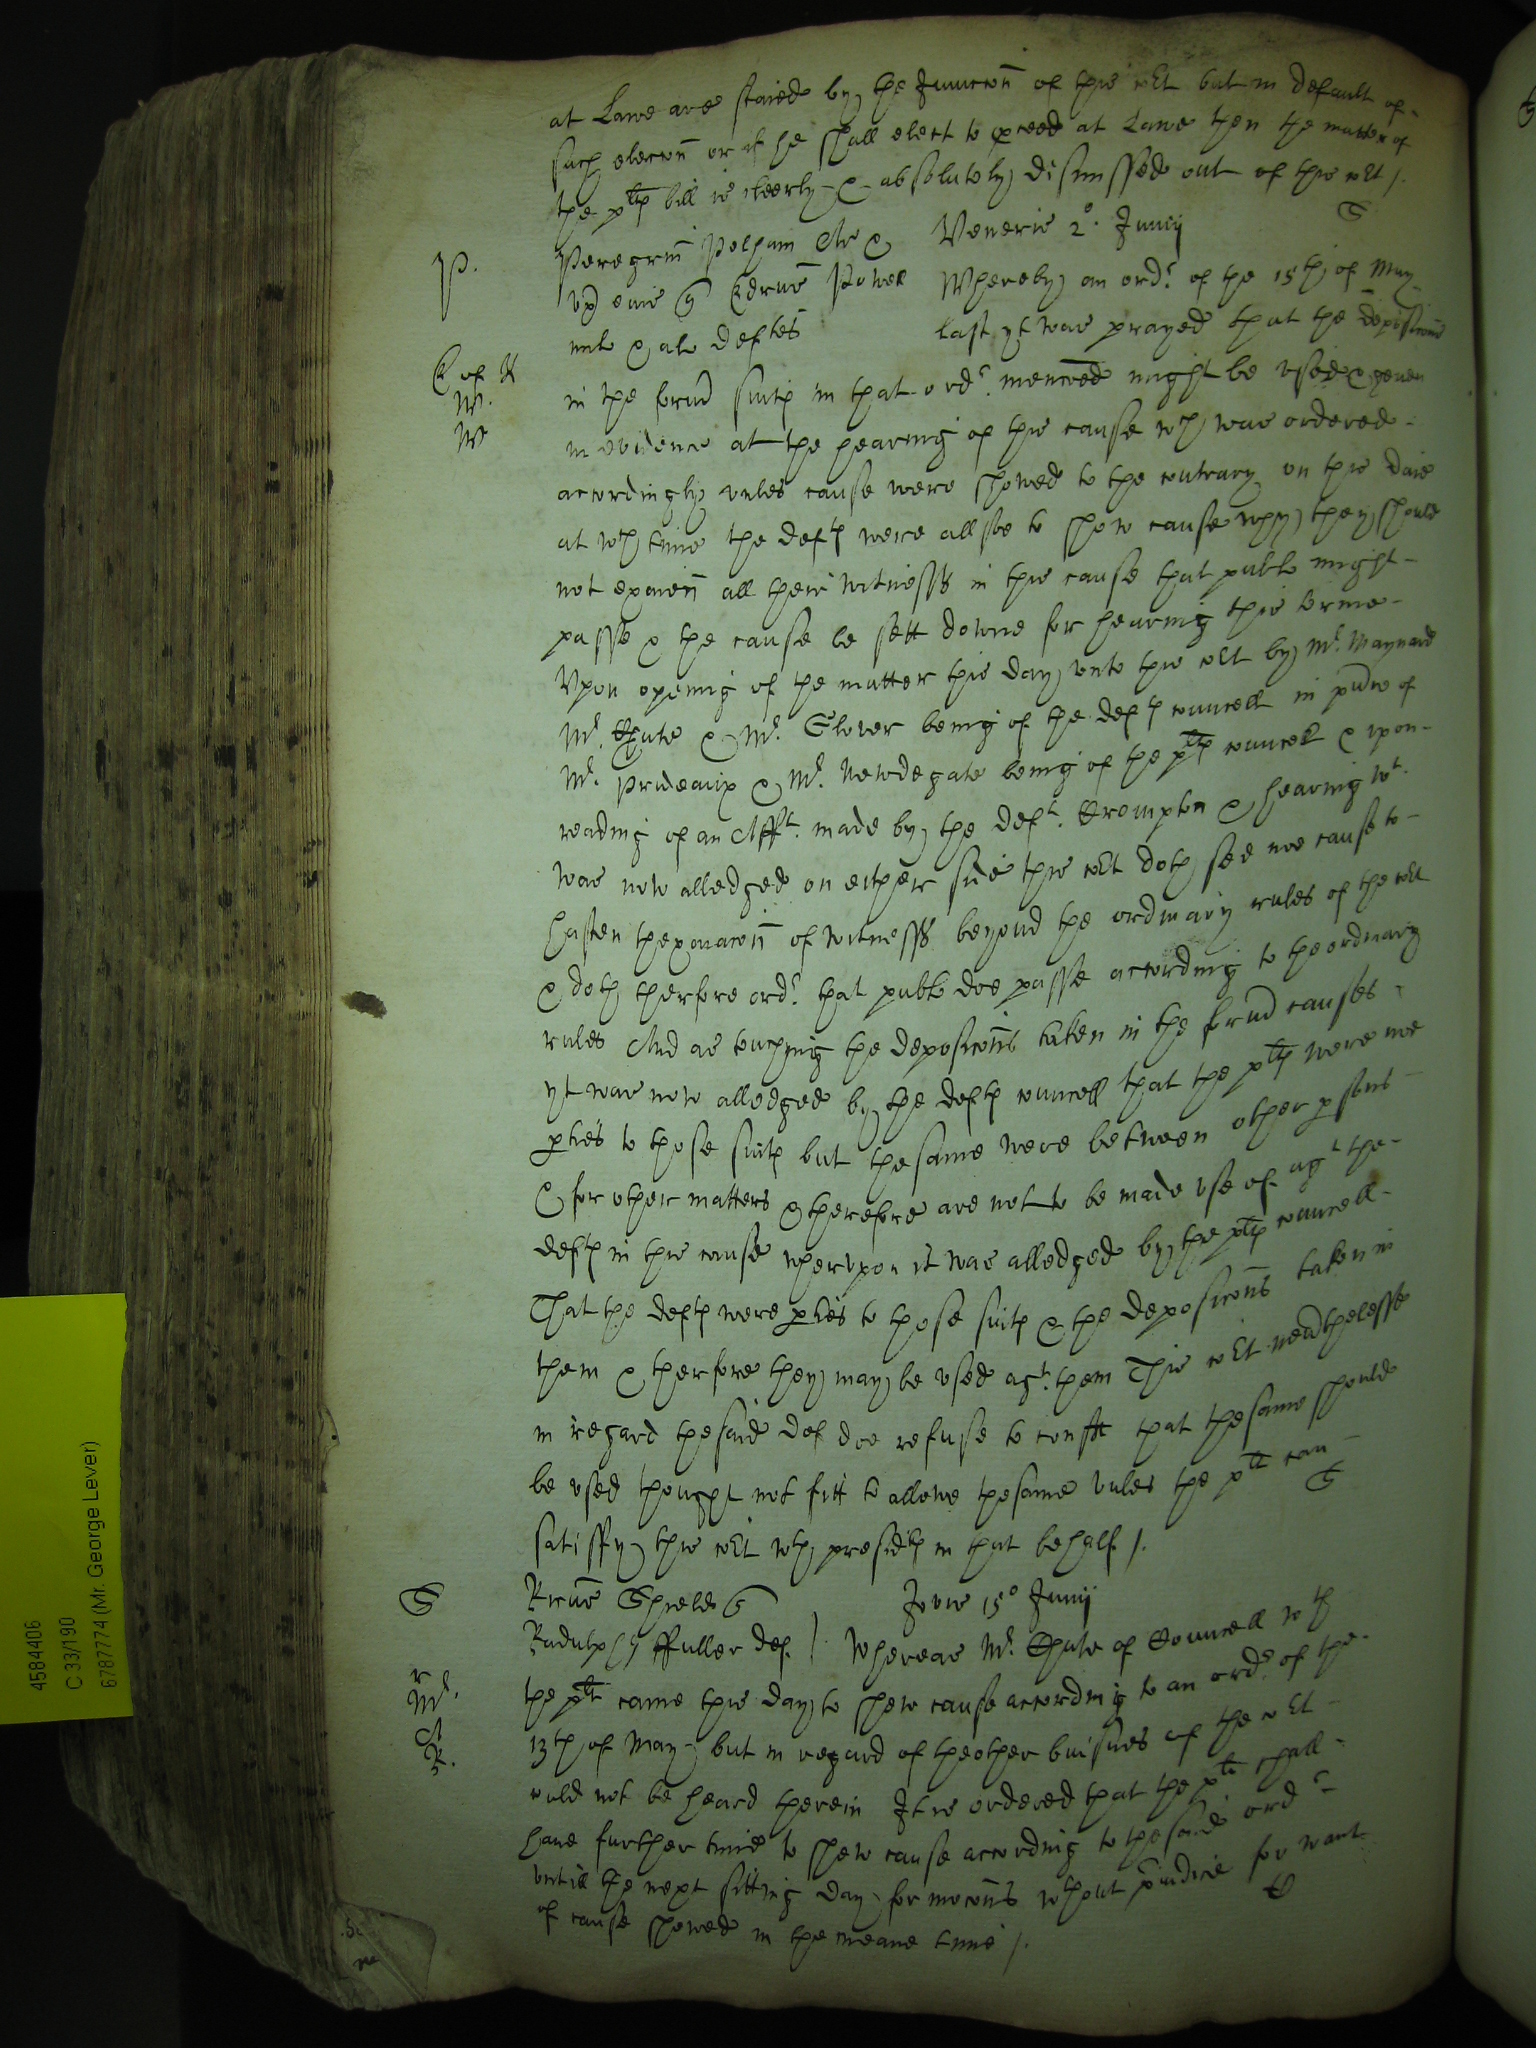 at Lawe are staied by the Junccon of this Cort but in default of
such eleccon or if he shall elect to pceed at Lawe then the matter of
the plts bill is cleerly & absolutely dismissed out of this Cort /.
S
P.
Peregrin Pelham Ar &
Veneris 2o. Junij
ux eius
Powell
Whereby an ordr. of the 15th of May
mil & al deftes
last yt was prayed that the deposicons
in the formr suits in that ordr. menconed might be vsed & geven
W.
W
in evidence at the hearing of this cause wch was ordered
accordingly vnles cause were shewed to the contrary on this daie
at wch time the defts were allsoe to shew cause why they should
not exaien all their witnesses in this cause that publc might
passe & the cause be sett downe for hearing this terme
Vpon opening of the matter this day vnto this Cort by Mr. Maynard
Mr. Chute & Mr. Glover being of the defts councell in pnce of
Mr. Prideaux & Mr. Newdegate being of the plts councell & vpon
reading of an Afft. made by the deft. Crompton & hearing wt.
was now alledged on either side this Cort doth see noe cause to
hasten thexaiacon of witnesses beyond the ordinary rules of the Cort
& doth therfore ordr. that publc doe passe according to the ordinary
rules And as touching the deposicons taken in the formr causes
yt was now alledged by the defts councell that the plts were noe
pties to those suits but the same were between other psons
& for other matters & therefore are not to be made vse of agt the
defts in this cause whervpon it was alledged by the plts councell
That the defts were pties to those suits & the deposicons taken in
them & therfore they may be vsed agt. them This Cort neverthelesse
in regard the said def doe refuse to consent that the same should
be vsed thought not fitt to allowe the same vnles the plt can
S
satisfy this Cort wth presidts in that behalf /.
S
Ricus Shield
Jovis 15o Junij
Radulph ffuller def.
Whereas Mr. Chute of Councell wth
Mr.
the plt came this day to shew cause according to an ordr. of the
A
R.
13th of May but in regard of theother buisnes of the Cort
could not be heard therein It is ordered that the plt shall
have further time to shew cause according to the said ordr
vntill the next sitting day for mocons wthout preiudice for want
of cause shewed in the meane time /.
4584406
C 33/190
6787774 (Mr. George Lever)